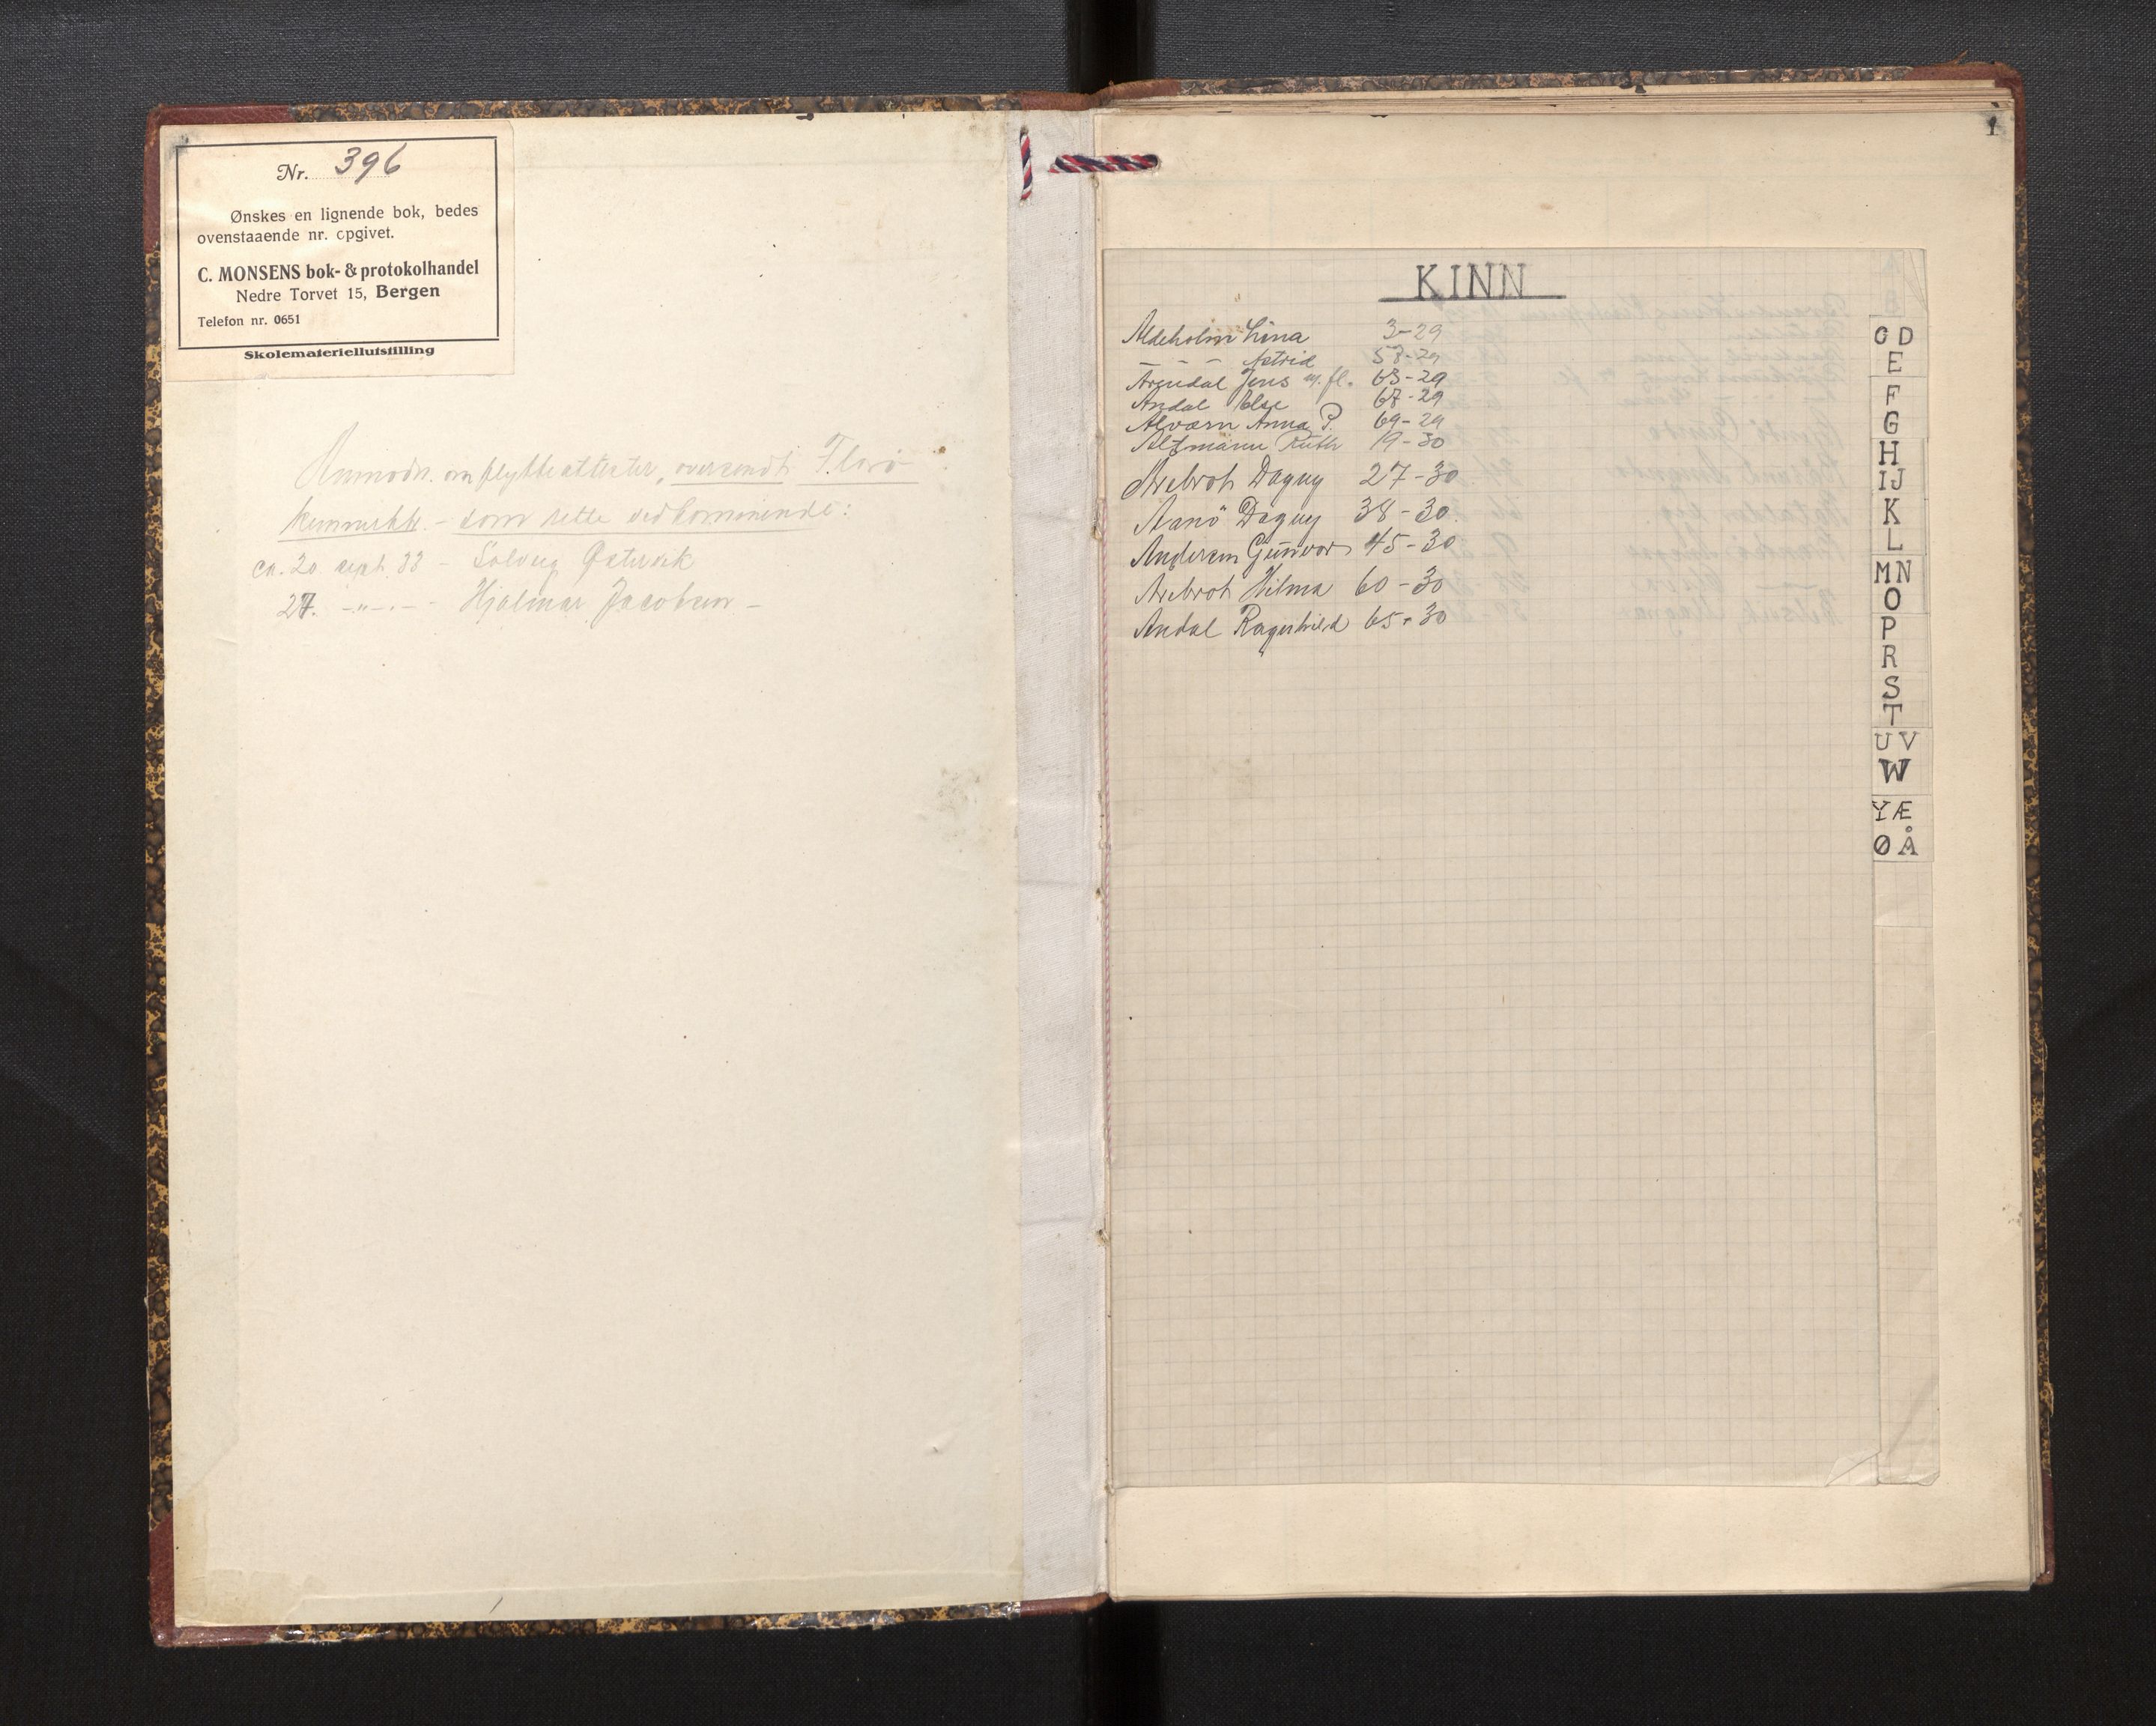 Nr. 396
Ønskes en lignende bok, bedes
ovenstaaende nr. opgivet.
C. MONSENS bok- & protokolhandel
Nedre Torvet 15, Bergen
Telefon nr. 0651
Skolemateriellutstilling
Anmodn. om flytteattester, oversendt Florö
- som rette vedkommende:
ca. 20. sept. 33 - Solveig Östervik
27. -"-.- - Hjalmar Jacobsen -
1
KINN
Aldeholm Lina 3-29
- - - Astrid 53-29
Arendal Jens m. fl. 63-29
Andal Else 67-29
Alværn Anna P. 69-29
Altmann Ruth 19-30
Arebrot Dagny 27-30
Aanö Dagny 38-30
Andersen Gunvor 45-30
Arebrot Hilma 60-30
Andal Ragnhild 65-30
C D
E
F
G
H
IJ
K
L
MN
O
P
R
S
T
U V
W
YÆ
ØÅ